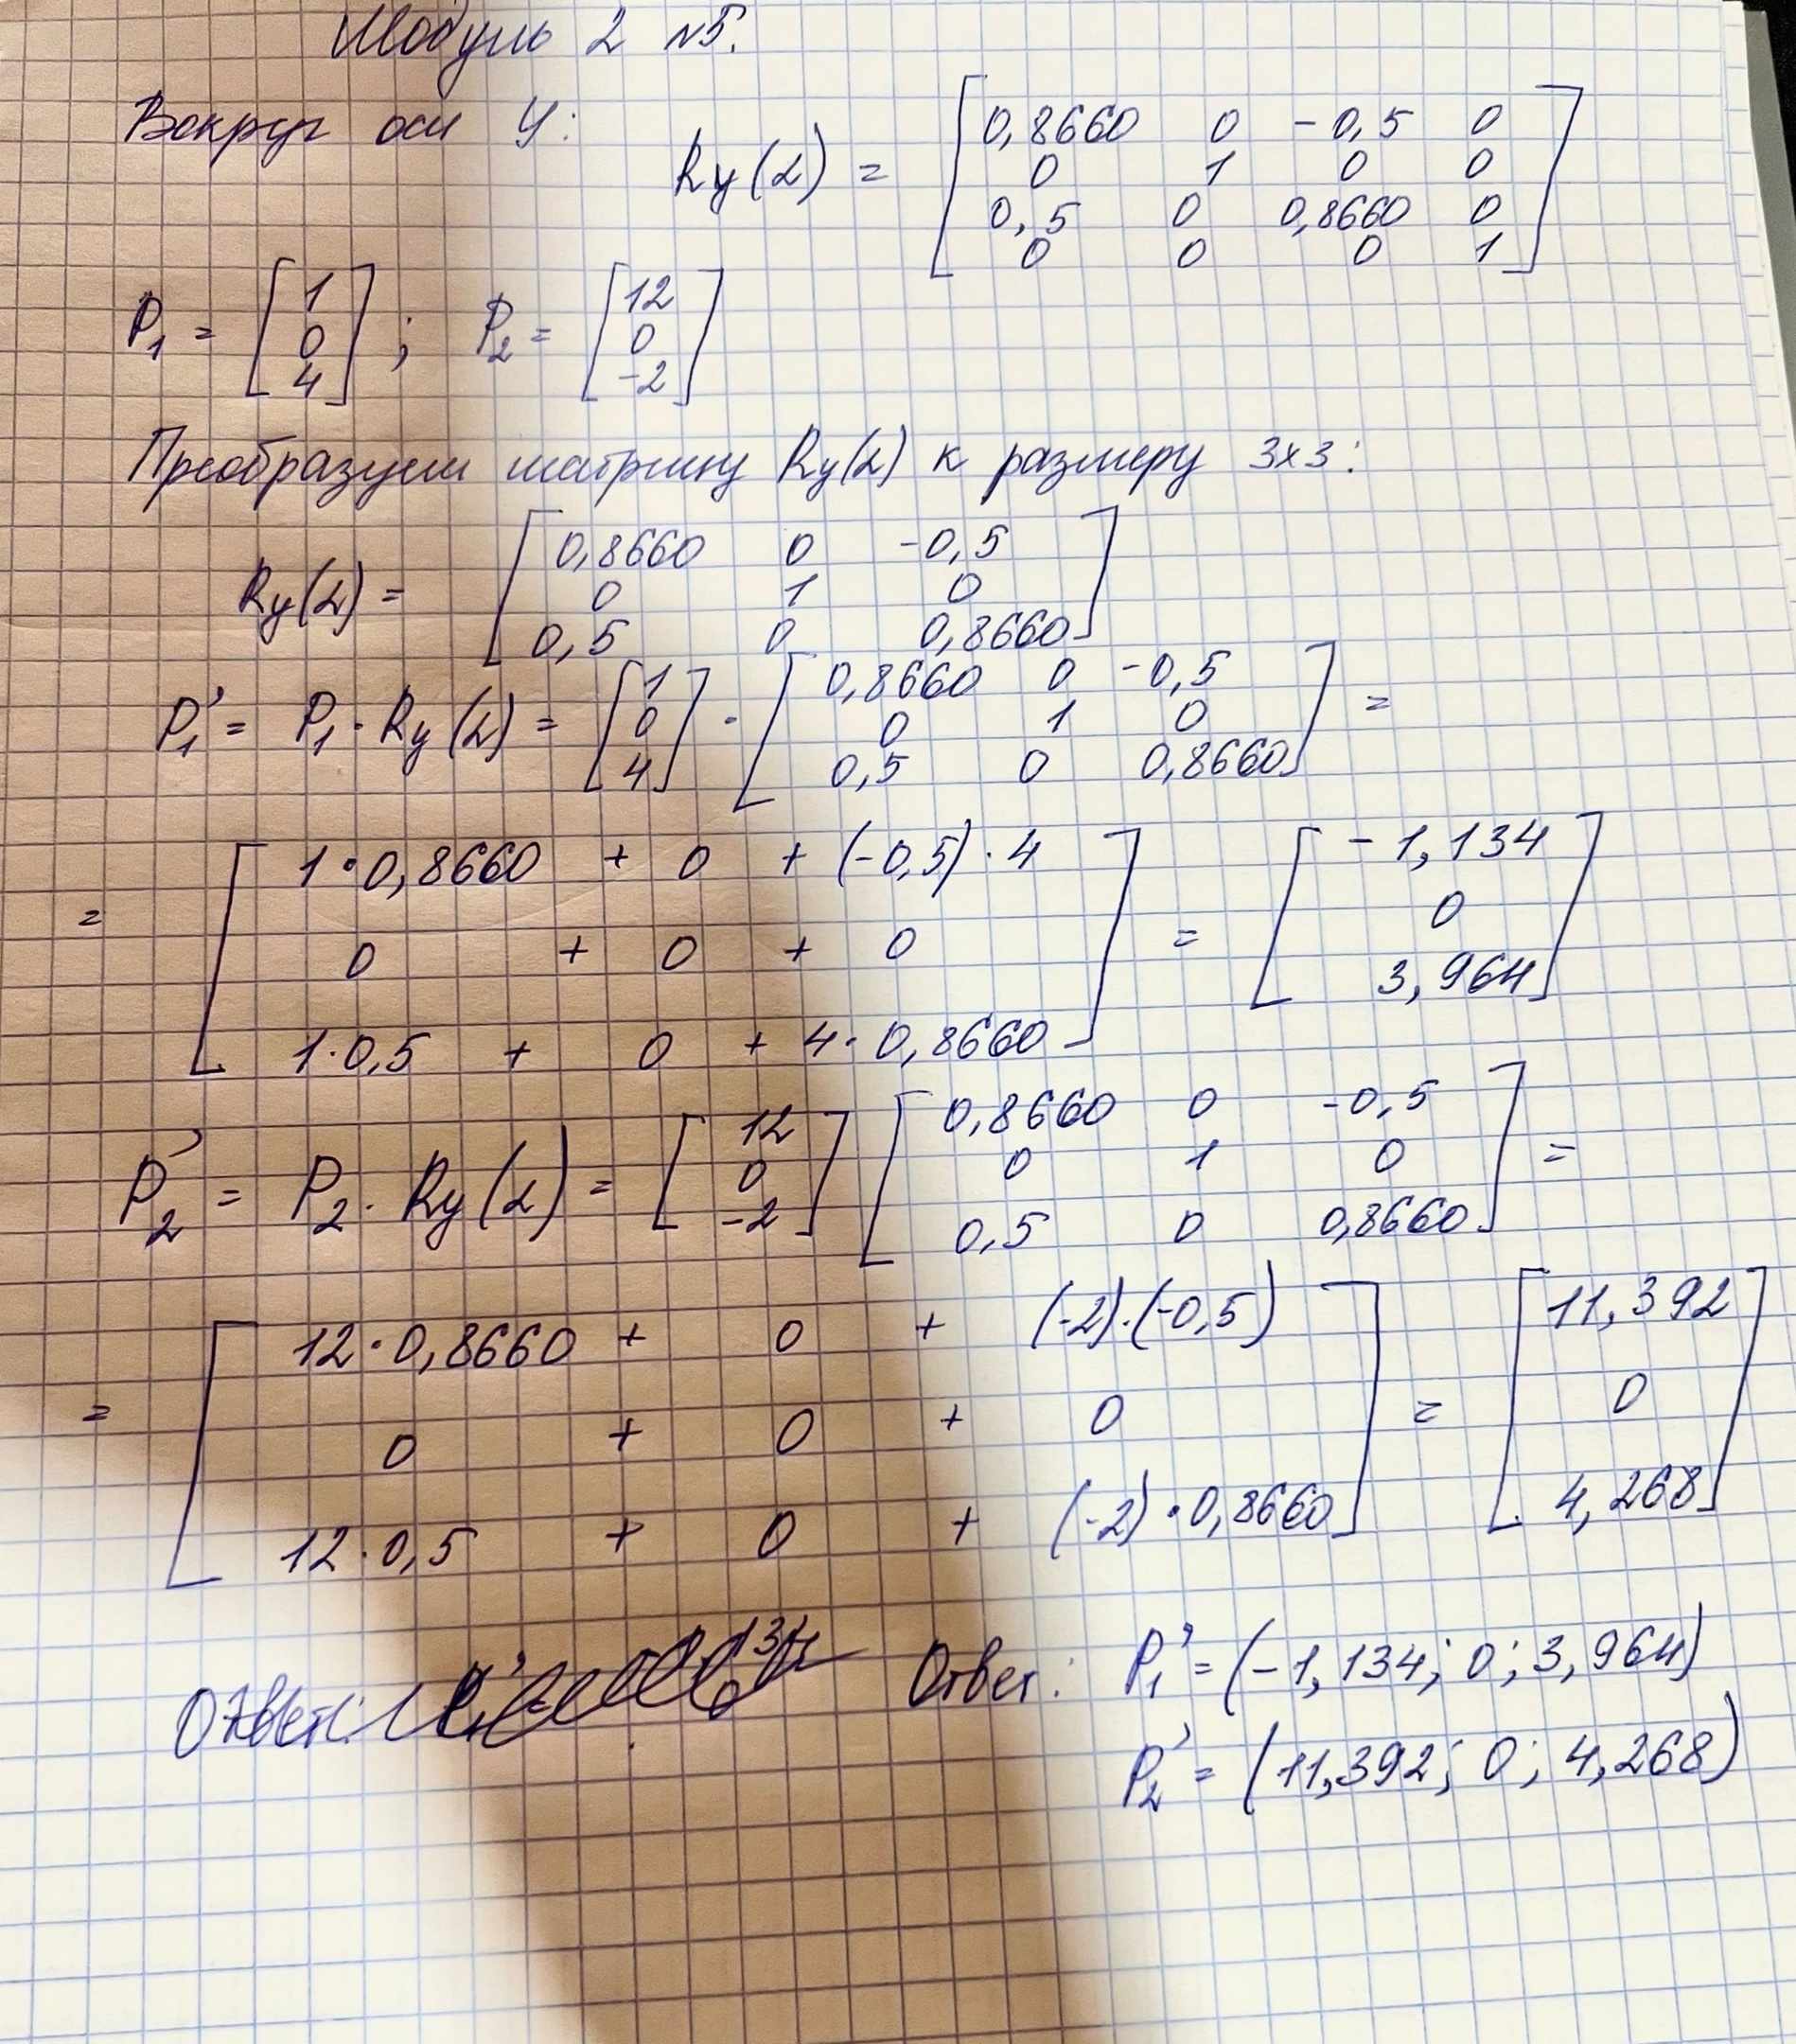 Модуль 2 №5.
Вокруг оси y:
Ry(α) = [ 0,8660 0 -0,5 0
0 1 0 0
0,5 0 0,8660 0
0 0 0 1 ]
P₁ = [ 1 0 4 ] ; P₂ = [ 12 0 -2 ]
Преобразуем матрицу Ry(α) к размеру 3x3:
Ry(α) = [ 0,8660 0 -0,5
0 1 0
0,5 0 0,8660 ]
P₁' = P₁ · Ry(α) = [ 1 0 4 ] · [ 0,8660 0 -0,5
0 1 0
0,5 0 0,8660 ] =
= [ 1·0,8660 + 0 + (-0,5)·4
0 + 0 + 0
1·0,5 + 0 + 4·0,8660 ] = [ -1,134
0
3,964 ]
P₂' = P₂ · Ry(α) = [ 12 0 -2 ] [ 0,8660 0 -0,5
0 1 0
0,5 0 0,8660 ] =
= [ 12·0,8660 + 0 + (-2)·(-0,5)
0 + 0 + 0
12·0,5 + 0 + (-2)·0,8660 ] = [ 11,392
0
4,268 ]
Ответ:
Ответ: P₁' = (-1,134; 0; 3,964)
P₂' = (11,392; 0; 4,268)